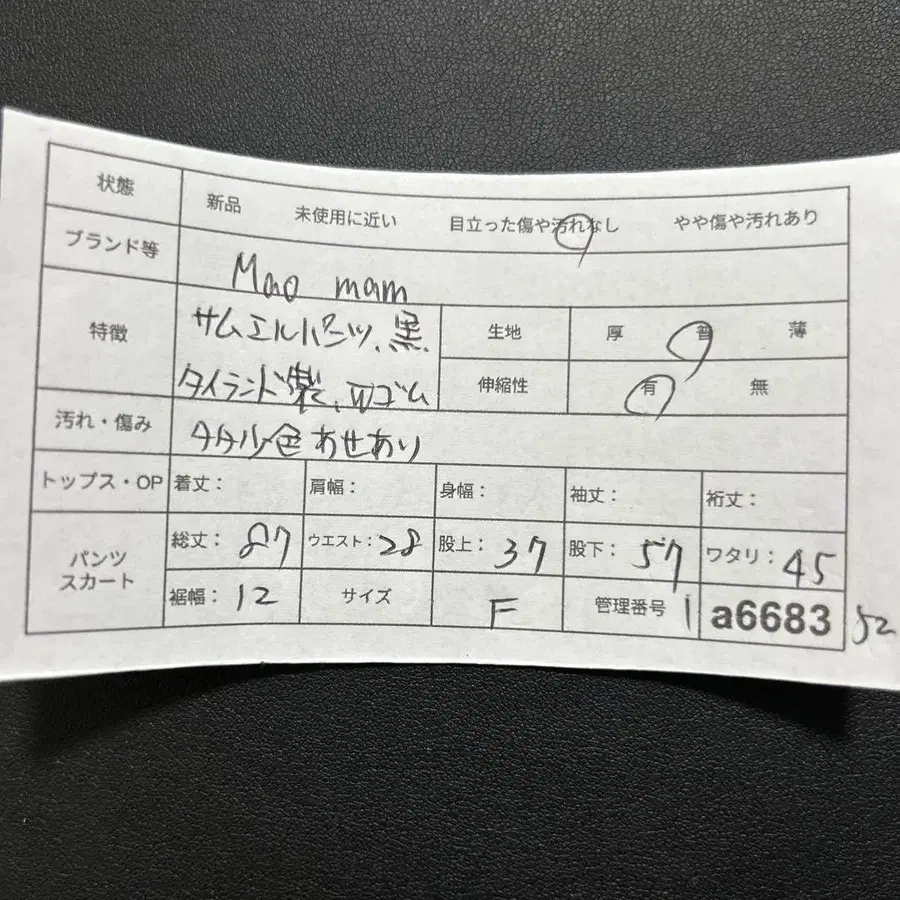 状態 新品 未使用に近い 目立った傷や汚れなし やや傷や汚れあり
ブランド等 Mao mam
特徴 サムエルパンツ、黒、
タイランド製、ゴム
生地 厚 普 薄
伸縮性 有 無
汚れ・傷み 色あせあり
トップス・OP 着丈: 肩幅: 身幅: 袖丈: 裄丈:
パンツ スカート
総丈: 87 ウエスト: 28 股上: 37 股下: 57 ワタリ: 45
裾幅: 12 サイズ F 管理番号 1 a6683 52